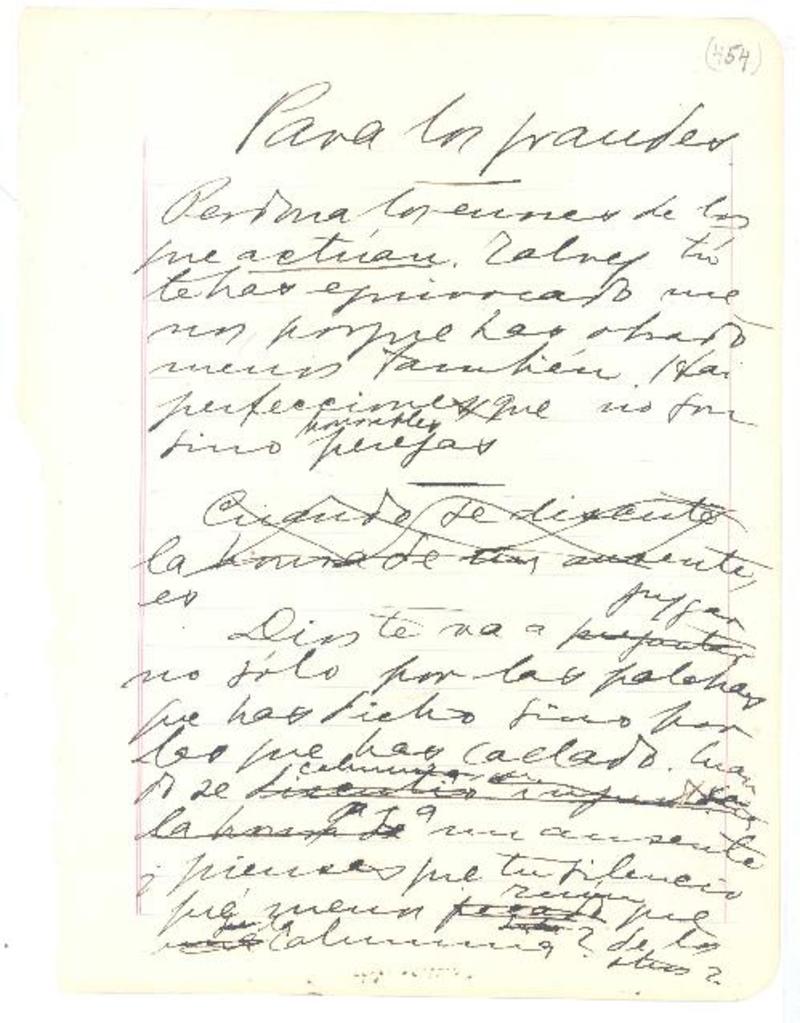 (454)
Para los grandes
Perdona los errores de los
que actúan. Talvez tú
te has equivocado me
nos porque has obrado
menos también. Hai
perfecciones que no son
sino honorables perezas
Cuando se discute
la honra de un ausente,
es
Dios te va a preguntar juzgar
no sólo por las palabras
que has dicho sino por
las que has callado. Cuan
do se discutió calumniaron
la honra de a un ausente
¿piensas que tu silencio
fué menos ruin que
la calumnia? de los
otros?